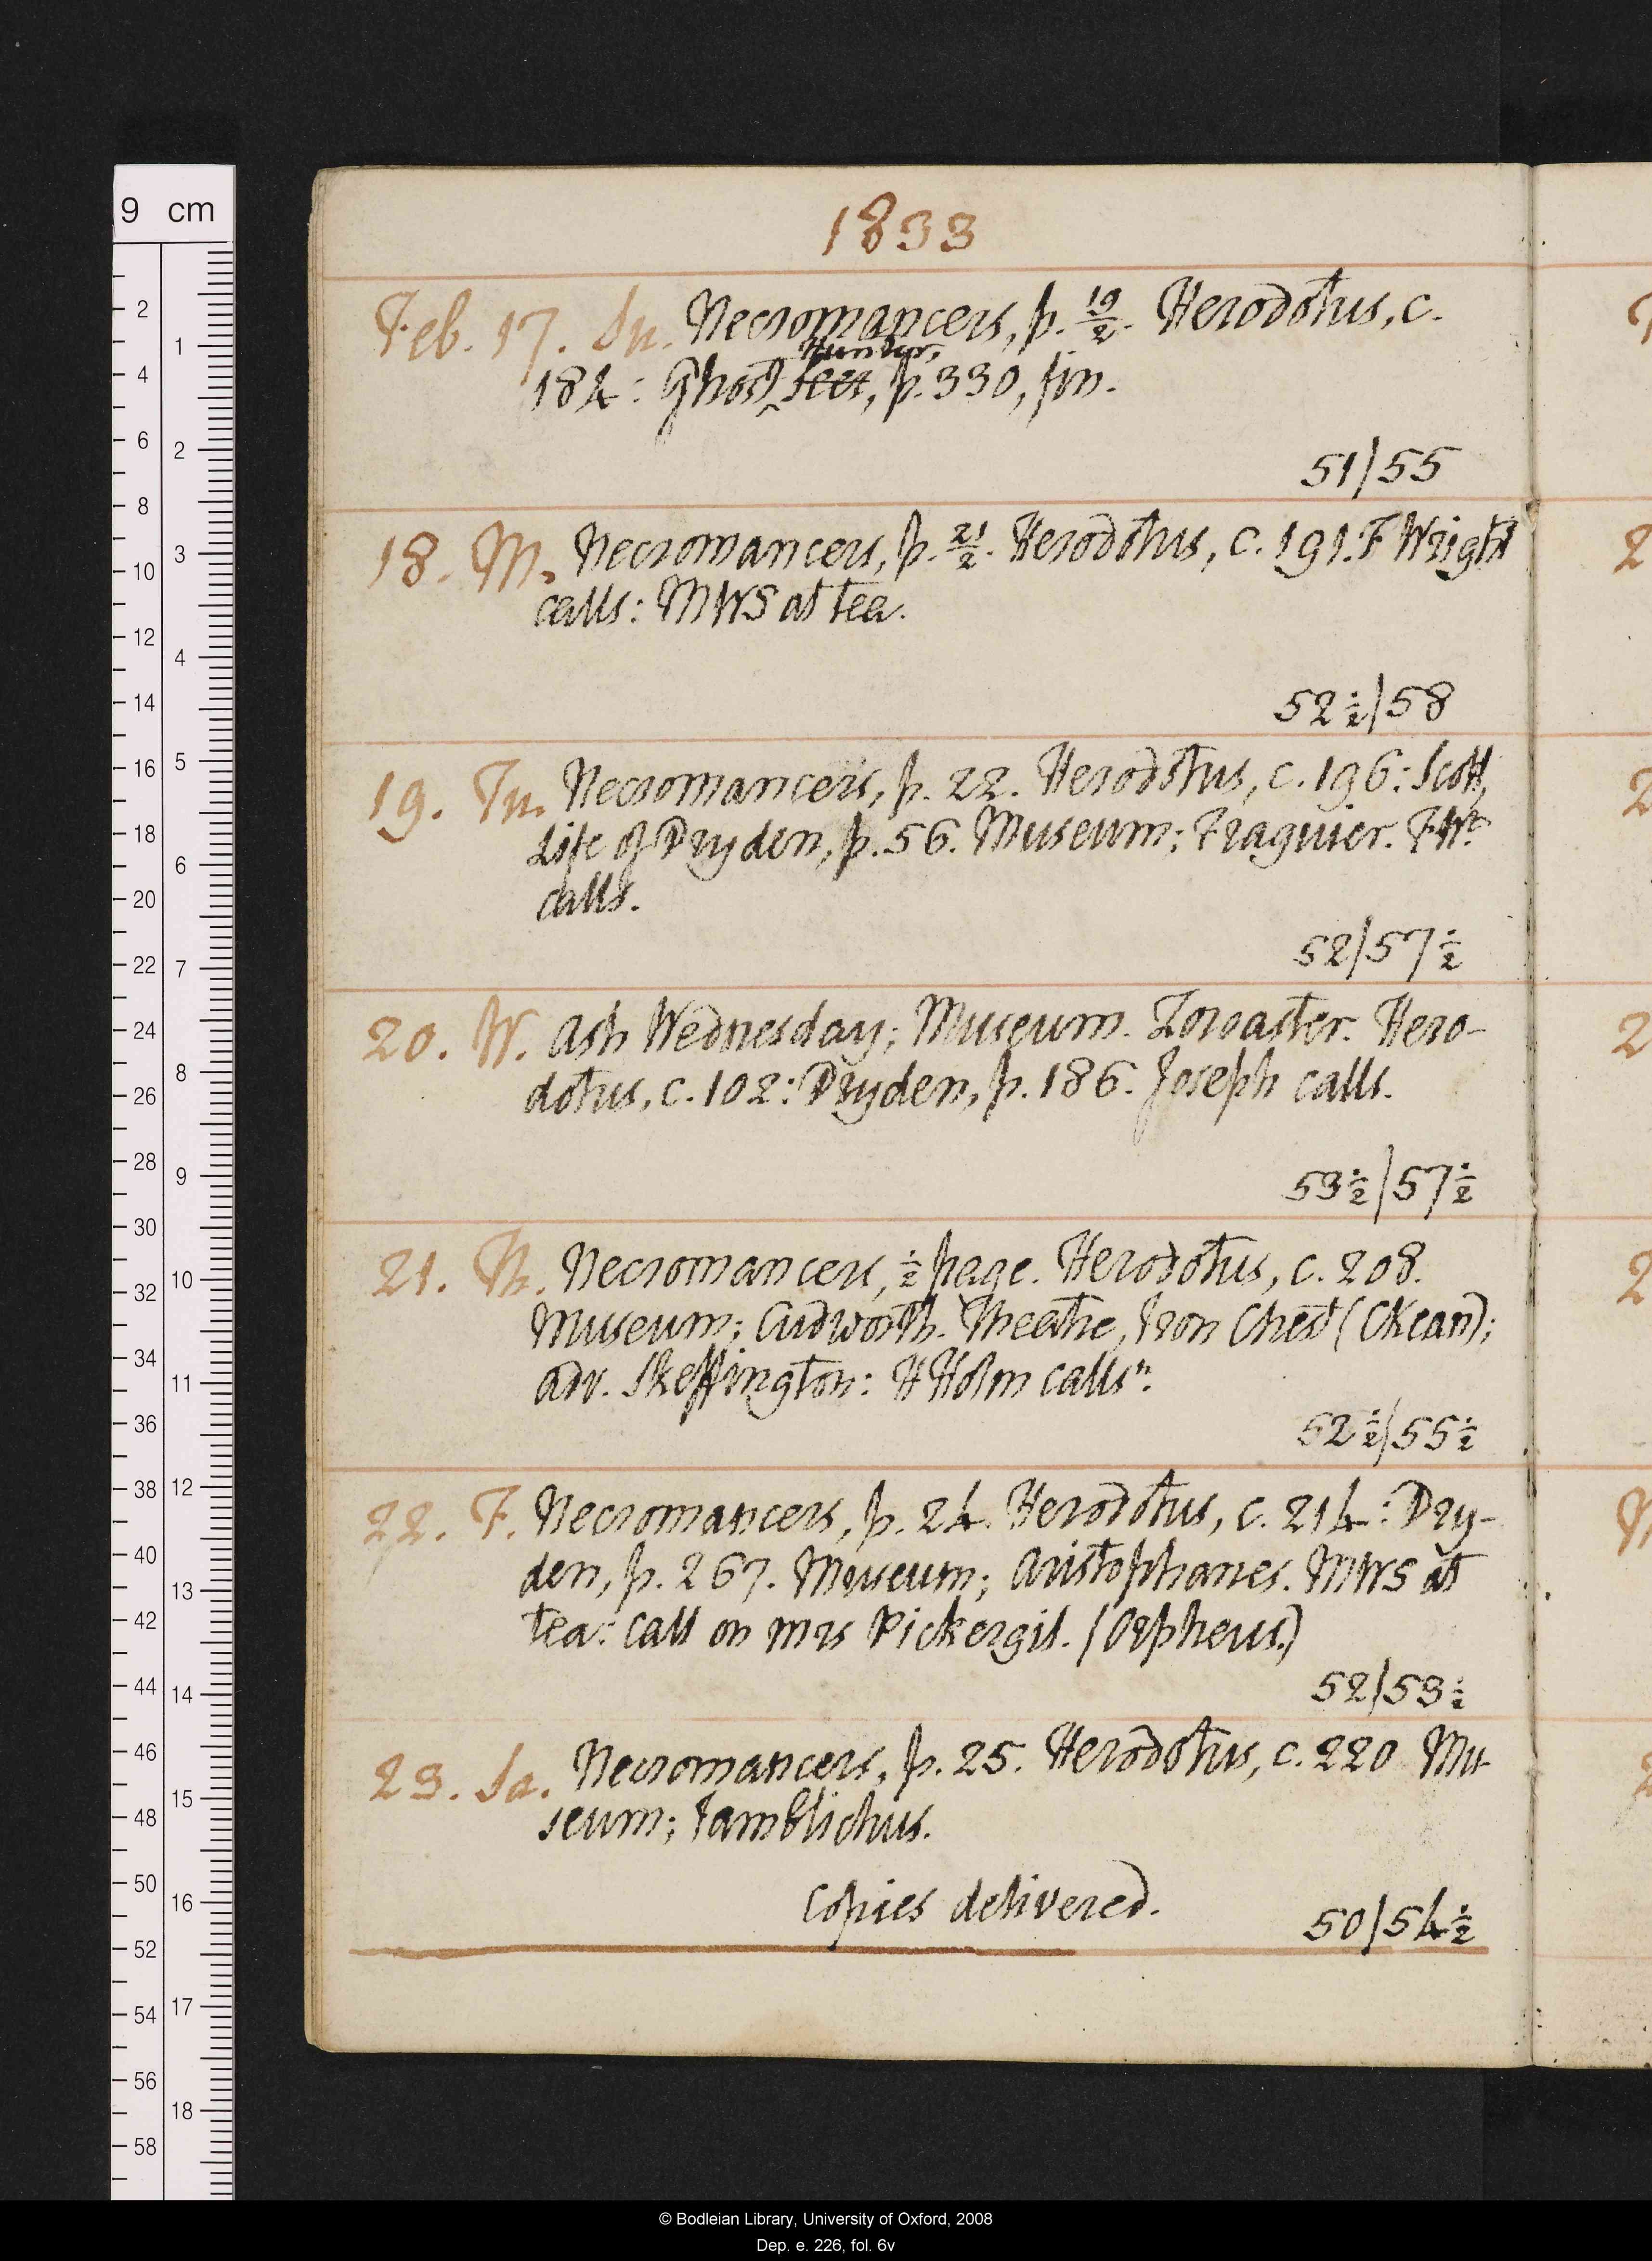 1833
Feb. 17. Su. Necromancers, p. 19/2. Herodotus, c.
Hunter,
184: Ghost ‸ seer, p. 330, fin.
51/55
18. M. Necromancers, p. 21/2. Herodotus, c. 191. F Wright
calls: MWS at tea.
52½/58
19. Tu. Necromancers, p. 22. Herodotus, c. 196: Scott,
Life of Dryden, p. 56. Museum; Fraguier. F Wt
calls.
52/57½
20. W. Ash Wednesday; Museum. Zoroaster. Hero-
dotus, c. 102: Dryden, p. 186. Joseph calls.
53½/57½
21. Th. Necromancers, ½ page. Herodotus, c. 208.
Museum; Cudworth. Theatre, Iron Chest (CKean);
adv. Skeffington: H Holm calls n.
52½/55½
22. F. Necromancers, p. 24. Herodotus, c. 214: Dry-
den, p. 267. Museum; Aristophanes. MWS at
tea: call on Mrs Pickergil. (Orpheus.)
52/53½
23. Sa. Necromancers, p. 25. Herodotus, c. 220 Mu-
seum; Iamblichus.
Copies delivered.
50/54½
9 cm
2 4 6 8 10 12 14 16 18 20 22 24 26 28 30 32 34 36 38 40 42 44 46 48 50 52 54 56 58
1 2 3 4 5 6 7 8 9 10 11 12 13 14 15 16 17 18
© Bodleian Library, University of Oxford, 2008
Dep. e. 226, fol. 6v